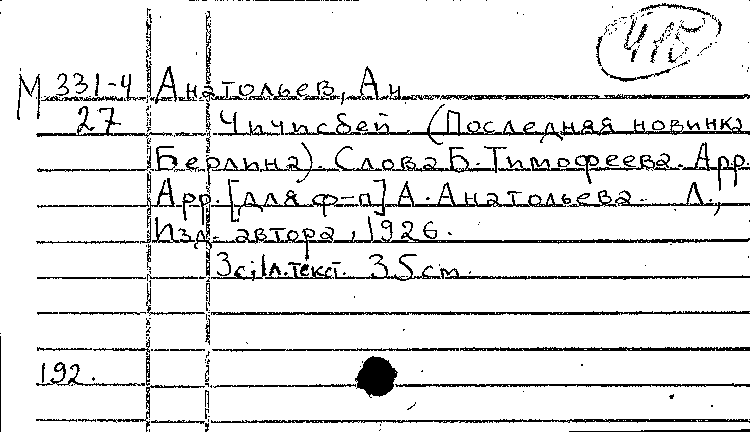 415
М 331-4 Анатольев, Ан
27 Чичисбей. (Последняя новинка
Берлина). Слова Б. Тимофеева. Арр.
Арр. [для ф-п] А. Анатольева. Л.,
Изд. автора, 1926.
3с; 1л. текст. 35 см.
192.